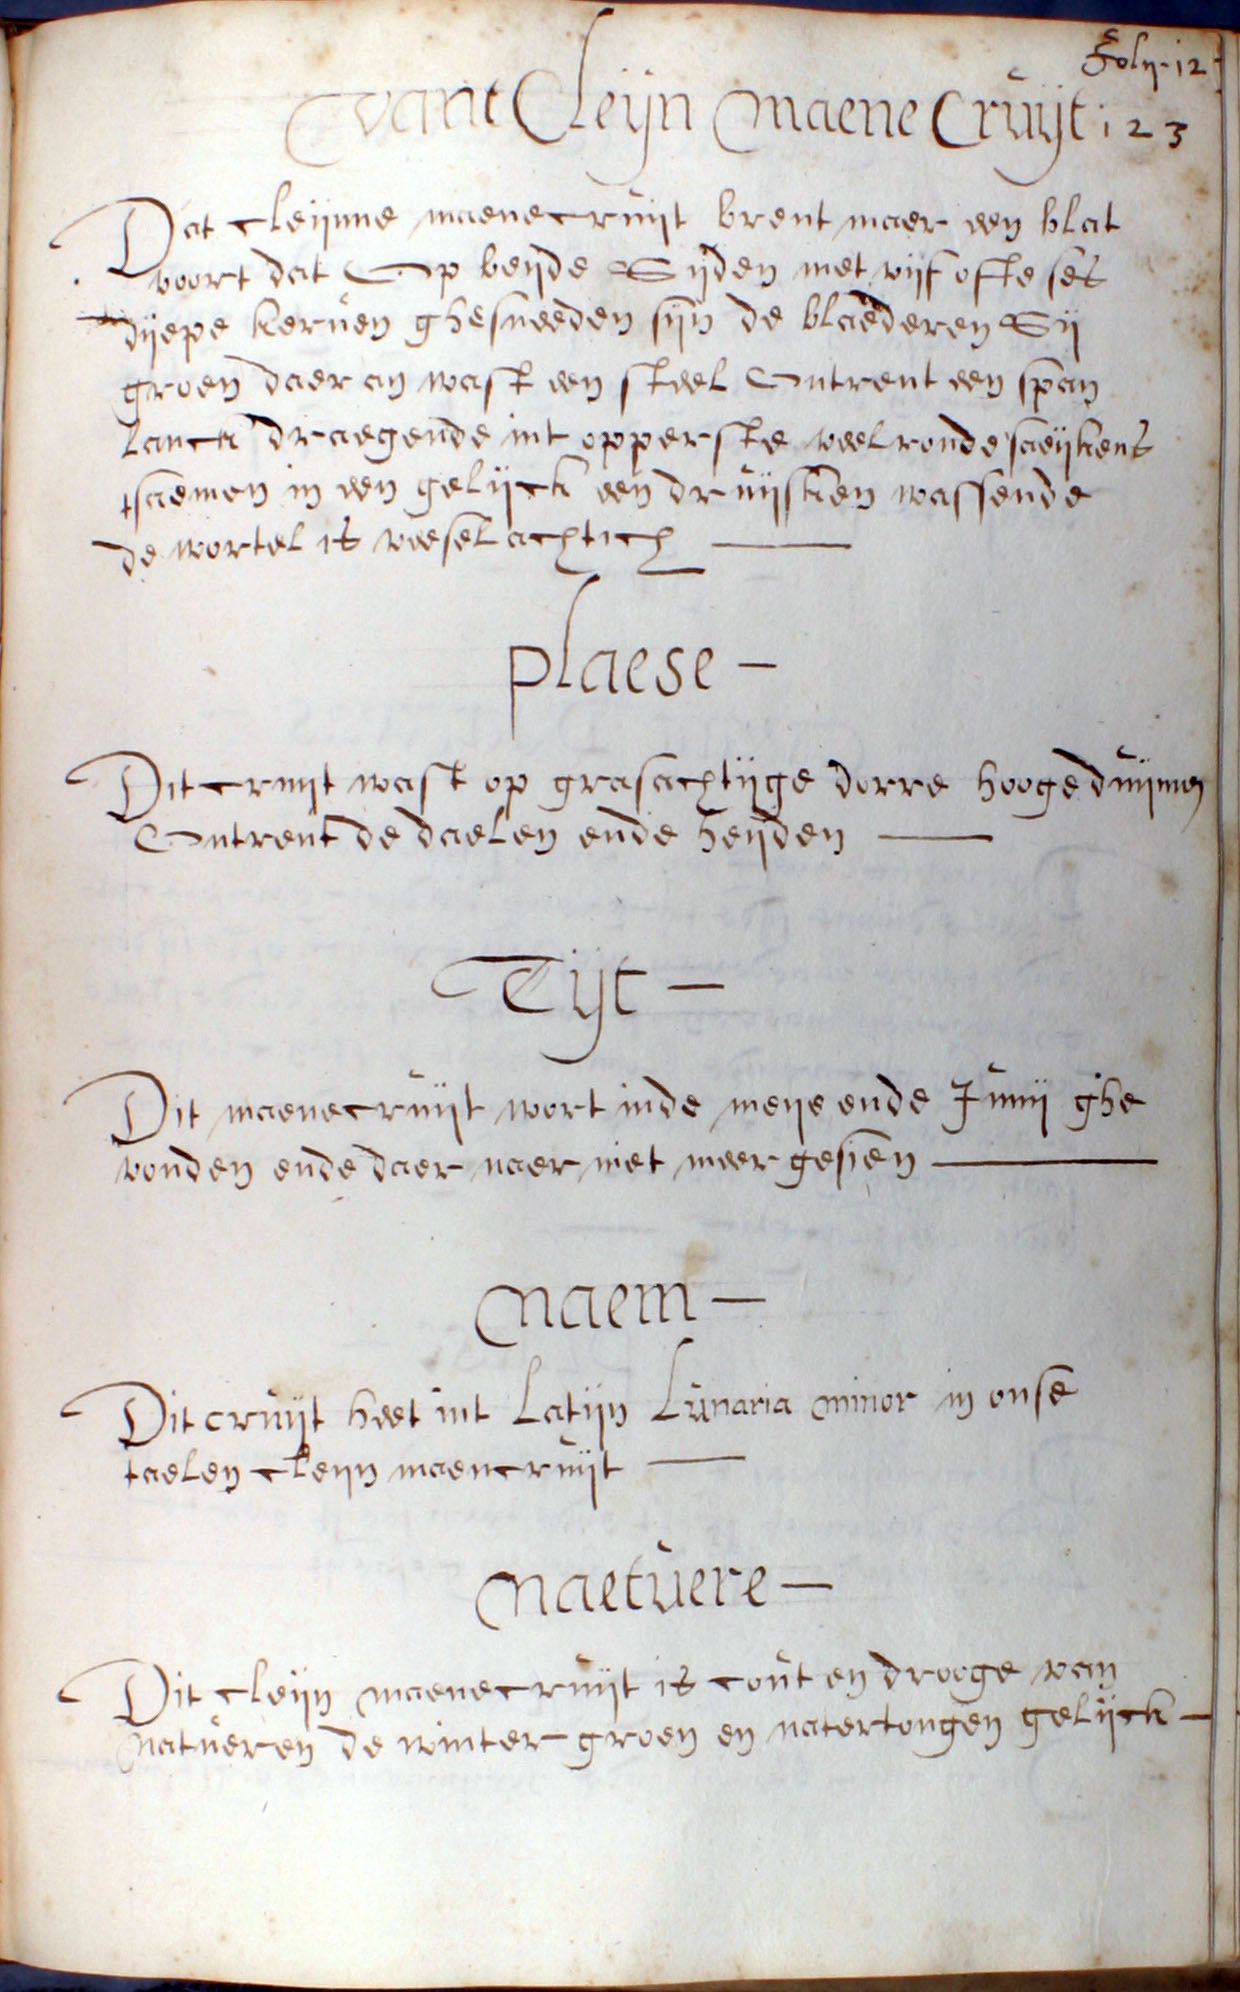 Foly. 12
Vant Cleijn Maene Cruijt 123
Dat cleijnne maenecruijt brent maer een blat
voort dat Op beijde Sijden met vijf ofte ses
dijepe kerven ghesneeden sijn de blaederen Sij
groen daer an wast een steel Ontrent een span
lanck draegende int opperste veel ronde saeijkens
tsaemen in een gelijck een druijsken wassende
de wortel is veeselachtich
plaese
Dit cruijt wast op grasachtijge dorre hooge duijnnen
Ontrent de daelen ende heijden
Tijt
Dit maenecruijt wort inde meije ende Junij ghe
vonden ende daer naer niet meer gesien
Naem
Dit cruijt heet int Latijn Lunaria minor in onse
taelen cleijn maencruijt
Naetuere
Dit cleijn maenecruijt is cout en drooge van
natueren de winter groen en natertongen gelijck